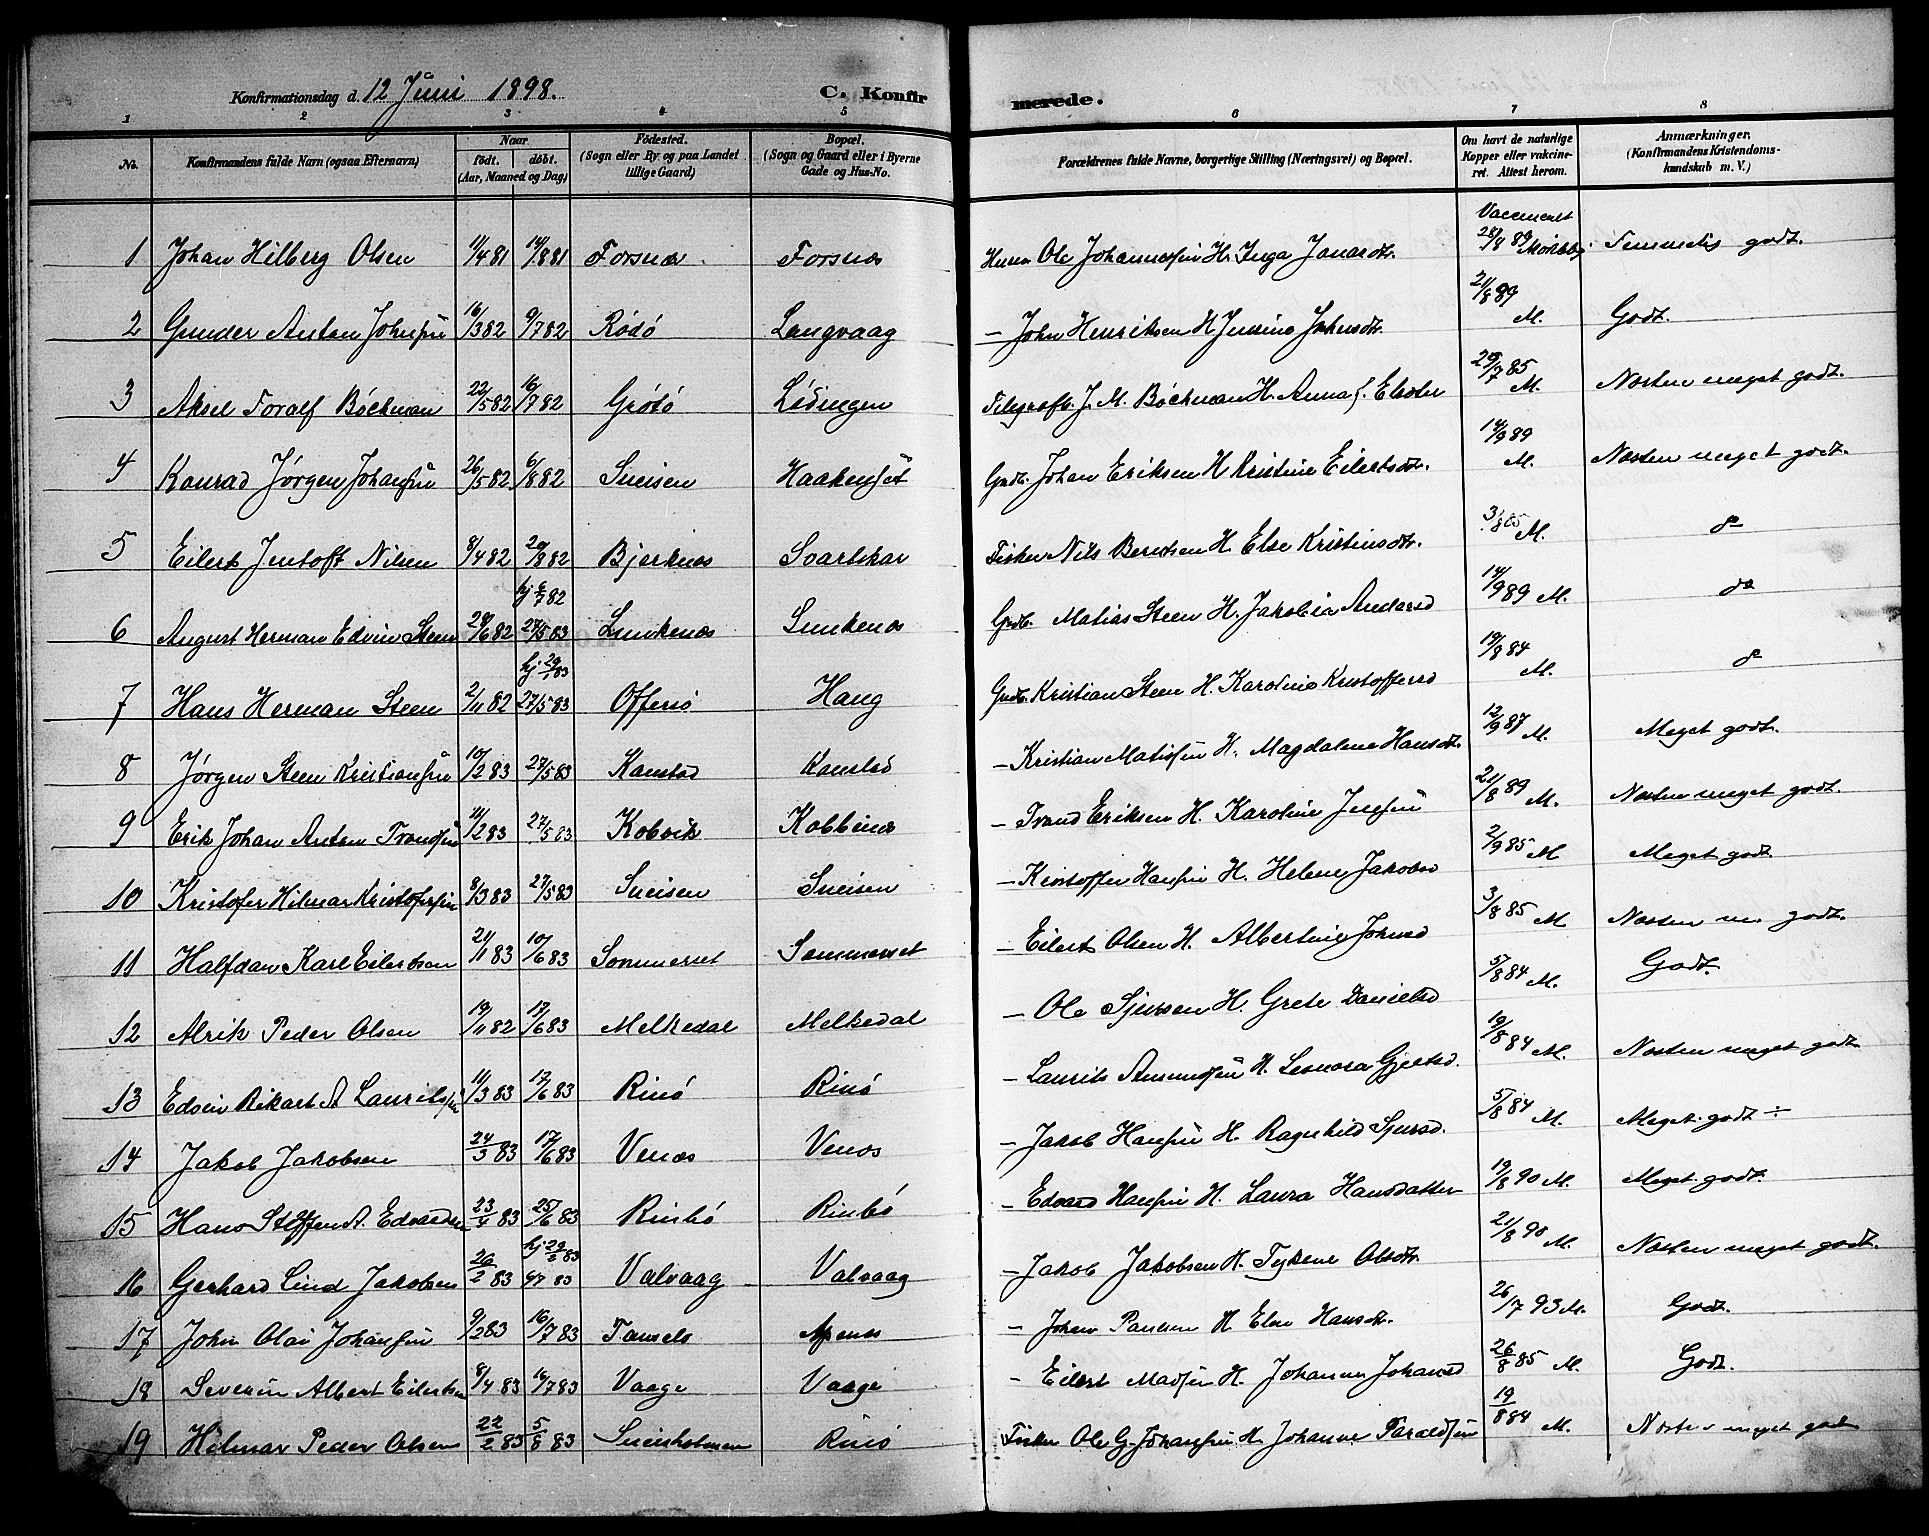 Konfirmationsdag d. 12 Juni 1898. C. Konfirmerede.
1 2 3 4 5 6 7 8
No. Konfirmandens fulde Navn (ogsaa Efternavn) Naar født. døbt. (Aar, Maaned og Dag) Fødested. (Sogn eller By og paa Landet tillige Gaard) Bopæl. (Sogn og Gaard eller i Byerne Gade og Hus-No. Forældrenes fulde Navne, borgerlige Stilling (Næringsvei) og Bopæl. Om havt de naturlige Kopper eller vakcineret. Attest herom. Anmærkninger. (Konfirmandens Kristendomskundskab m. V.)
1 Johan Hilberg Olsen 11/4 81 14/8 81 Forsnæs Forsnæs Ole Johannessen H. Inga Jonasdtr. 28/8 89 godt.
2 Gunder Anton Johnsen 16/3 82 9/7 82 Rödö Langvaag — John Henriksen H. Jensine Johnsdtr. 21/8 89 M. Godt.
3 Aksel Toralf Böckman 22/5 82 16/7 82 Grötö Lödingen Telegrafb. J. M. Böckman H. Anna f. Elster 29/7 85 M. Næsten meget godt.
4 Konrad Jørgen Johansen 26/5 82 6/8 82 Sneisen Haakenset Grdb. Johan Eriksen H. Kristine Eilertsdtr. 14/9 89 M. Næsten meget godt.
5 Eilert Jentoft Nilsen 8/4 82 20/8 82 Bjerknæs Svartskar Fisker Nils Berntsen H. Else Kristinsdtr. 3/8 85 M. do
6 August Herman Edvin Steen 28/6 82 hj 2/7 82 27/5 83 Lunkenæs Lunkenæs Grdb. Matias Steen H. Jakobia Andersd 14/9 89 M. do
7 Hans Herman Steen 2/11 82 hj 29/1 83 27/5 83 Offersö Haug Grdb. Kristian Steen H. Karoline Kristoffersd 19/8 84 M. do
8 Jørgen Steen Kristiansen 10/2 83 27/5 83 Kanstad Kanstad — Kristian Matisen H. Magdalene Hansdtr. 12/9 87 M. Meget godt.
9 Erik Johan Anton Trondsen 11/2 83 27/5 83 Kobvik Kobbenæs — Trond Eriksen H. Karoline Jensen 21/8 89 M. Næsten meget godt.
10 Kristofer Hilmar Kristofersen 8/3 83 27/5 83 Sneisen Sneisen — Kristoffer Hansen H. Helene Jakobsd 2/9 85 M Meget godt
11 Halfdan Karl Eilertsen 21/1 83 10/6 83 Sommerset Sommerset — Eilert Olsen H. Albertine Johnsd 3/8 85 M Næsten m. godt.
12 Alrik Peder Olsen 19/11 82 17/6 83 Melkedal Melkedal — Ole Sjursen H. Grete Danielsd 5/8 84 M. Godt.
13 Edvin Rikart A Lauritssen 11/3 83 17/6 83 Rinö Rinö — Laurits Amundsen H. Leonora Gjertsd. 19/8 84 M. Næsten meget godt.
14 Jakob Jakobsen 24/3 83 17/6 83 Venæs Venæs — Jakob Hansen H. Ragnhild Sjursd. 5/8 84 M. Meget godt ÷
15 Hans Steffen A. Edvardsen 23/4 83 25/6 83 Rinbö Rinbö — Edvard Hansen H. Laura Hansdatter 19/8 90 M. Meget godt.
16 Gerhard Lind Jakobsen 26/2 83 hj 29/2 83 9/7 83 Valvaag Valvaag — Jakob Jakobsen H. Olsdtr. 21/8 90 M. Næsten meget godt.
17 John Olai Johansen 9/2 83 16/7 83 — Johan Paulsen H. Else Hansdtr. 26/7 93 M. Godt.
18 Severin Albert Eilertsen 8/4 83 16/7 83 Vaage Vaage — Eilert Madsen H. Johanna Johansd 26/8 85 M. Godt.
19 Hilmar Peder Olsen 22/2 83 5/8 83 Sneisholmen Rinö Fisker Ole G. Johansen H. Johanne Taraldsen 19/8 84 M. Næsten meget godt